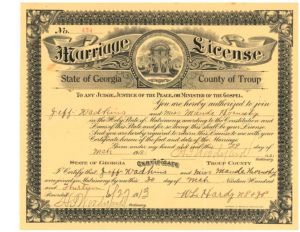 No.
Marriage License
State of Georgia County of Troup
TO ANY JUDGE, JUSTICE OF THE PEACE, OR MINISTER OF THE GOSPEL.
You are hereby authorized to join
Jeff Wadkins and Miss Maude Hornsby
in the Holy State of Matrimony according to the Constitution and
Laws of this State and for so doing this shall be your License.
And you are hereby required to return this License with your
Certificate hereon of the fact and date of the Marriage.
Given under my hand and seal this day of
Mch
STATE OF GEORGIA Certificate TROUP COUNTY
I Certify that Jeff Wadkins and Miss Maude Hornsby
were joined in Matrimony by me this day of Mch Nineteen Hundred
and Thirteen
W. L. Hardy